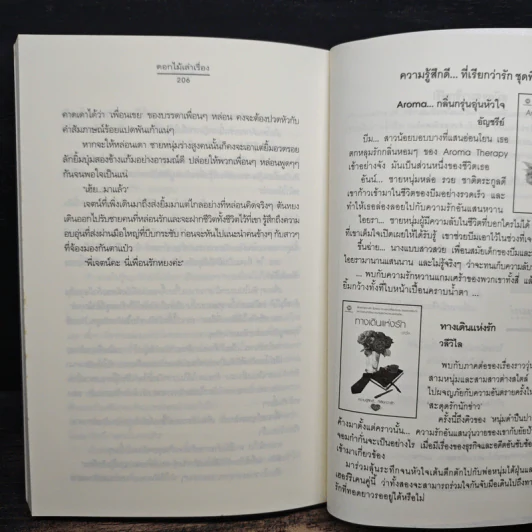 ดอกไม้เล่าเรื่อง
206
คาดเดาได้ว่า 'เพื่อนเขย' ของบรรดาเพื่อนๆ หล่อน คงจะต้องปวดหัวกับ
คำสัมภาษณ์ร้อยแปดพันเก้าแน่ๆ
หากจะให้หล่อนเดา ชายหนุ่มร่างสูงคนนั้นก็คงจะเอาแต่ยิ้มอวดรอย
ลักยิ้มบุ๋มสองข้างแก้มอย่างอารมณ์ดี ปล่อยให้พวกเพื่อนๆ หล่อนพูดๆๆ
กันจนพอใจเป็นแน่
"เฮ้ย...มาแล้ว"
เจตน์ที่เพิ่งเดินมาถึงส่งยิ้มมาแต่ไกลอย่างที่หล่อนคิดจริงๆ ต้นหยง
เดินออกไปรับชายคนที่หล่อนรักและจะฝากชีวิตทั้งชีวิตไว้ที่เขา รู้สึกถึงความ
อบอุ่นที่ส่งผ่านมือใหญ่ที่บีบกระชับ ก่อนจะหันไปแนะนำคนข้างๆ กับสาวๆ
ที่จ้องมองกันตาแป๋ว
"พี่เจตน์คะ นี่เพื่อนรักหยงค่ะ"
ความรู้สึกดี... ที่เรียกว่ารัก ชุดที่
Aroma... กลิ่นกรุ่นอุ่นหัวใจ
อัญชรีย์
บีม... สาวน้อยบอบบางที่แสนอ่อนโยน เธอ
ตกหลุมรักกลิ่นหอมๆ ของ Aroma Therapy
เข้าอย่างจัง มันเป็นส่วนหนึ่งของชีวิตเธอ
อันน์... ชายหนุ่มหล่อ รวย ชาติตระกูลดี
เขาก้าวเข้ามาในชีวิตของบีมอย่างรวดเร็ว และ
ทำให้เธอล่องลอยไปกับความรักอันแสนหวาน
ไอยรา... ชายหนุ่มผู้มีความลับในชีวิตที่บอกใครไม่ได้
ที่เขาเต็มใจเปิดเผยให้ได้รับรู้ เขาช่วยบีมเอาไว้ในช่วงที่เจ
นางแบบสาวสวย เพื่อนสมัยเด็กของบีมและ
ไอยรามานานแสนนาน และไม่รู้จริงๆ ว่าจะทนเก็บความลับ
... พบกับความรักหวานแกมเศร้าของพวกเขาทั้งสี่ แล้
ยิ้มกว้างทั้งที่ใบหน้าเปื้อนคราบน้ำตา ...
ทางเดินแห่งรัก
ทางเดินแห่งรัก
วลีวิไล
พบกับภาคต่อของเรื่องราววุ่น
สามหนุ่มและสามสาวต่างสไตล์
ไปผจญภัยกับความอันตรายครั้งใ
'สะดุดรักนักข่าว'
ครั้งนี้ถึงคิวของ หนุ่มดำปี๋นา
ค้างมาตั้งแต่คราวนั้น... ความรักอันแสนวุ่นวายของเขากับยัยปี
จอมกำกับจะเป็นอย่างไร เมื่อมีเรื่องของธุรกิจและอดีตอันซับซ้อ
เข้ามาเกี่ยวข้อง
มาร่วมลุ้นระทึกจนหัวใจเต้นตึกตักไปกับพ่อหนุ่มใต้ฝุ่นและ
เฮอร์ริเคนคู่นี้ ว่าทั้งสองจะสามารถร่วมใจกันจับมือเดินไปถึงทา
รักที่ทอดยาวรออยู่ได้หรือไม่